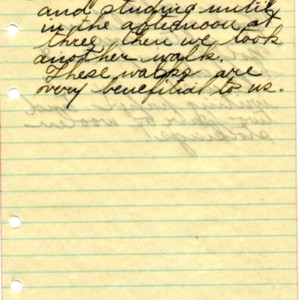 and studing until
in the afternoon at
three, then we took
another walk.
These walks are
very benefitial to us.